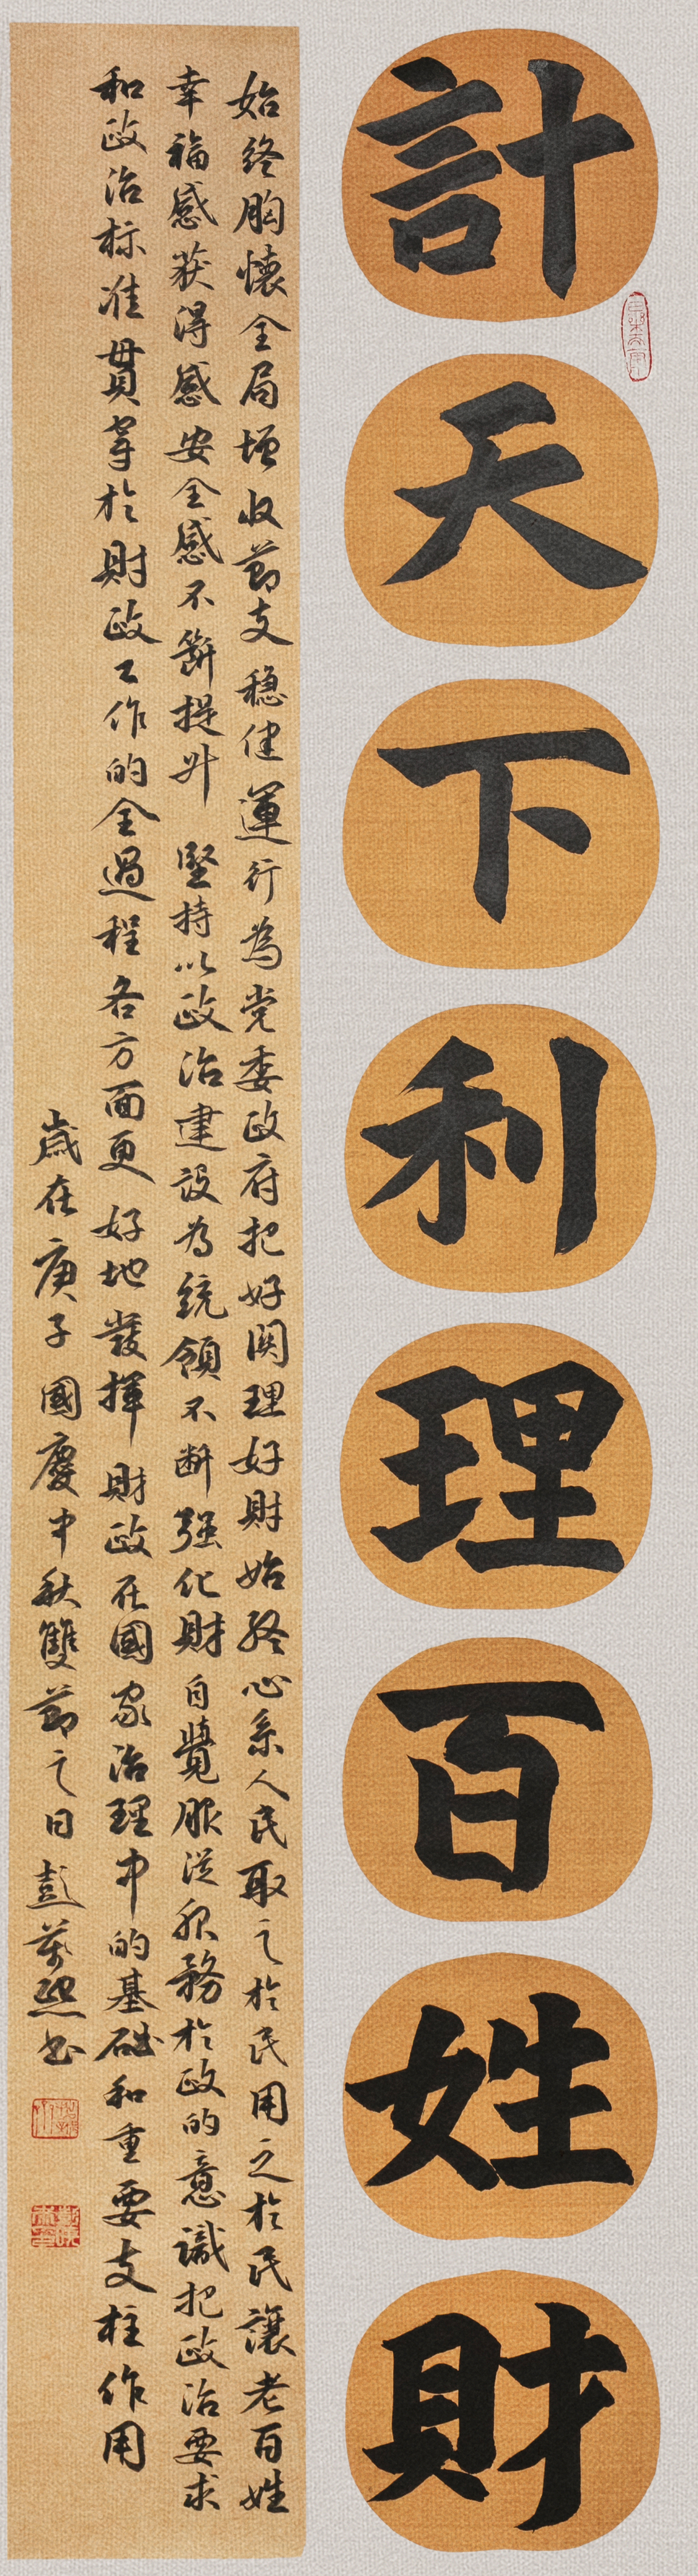 計天下利理百姓財
始終胸懷全局增收節支穩健運行為党委政府把好関理好財始終心系人民取之於民用之於民讓老百姓
幸福感获得感安全感不斷提升堅持以政治建设為統領不断强化財自覺服從服務於政的意識把政治要求
和政治标准貫穿於財政工作的全過程各方面更好地發揮財政在國家治理中的基础和重要支柱作用
歲在庚子國慶中秋雙節之日彭萬熙书